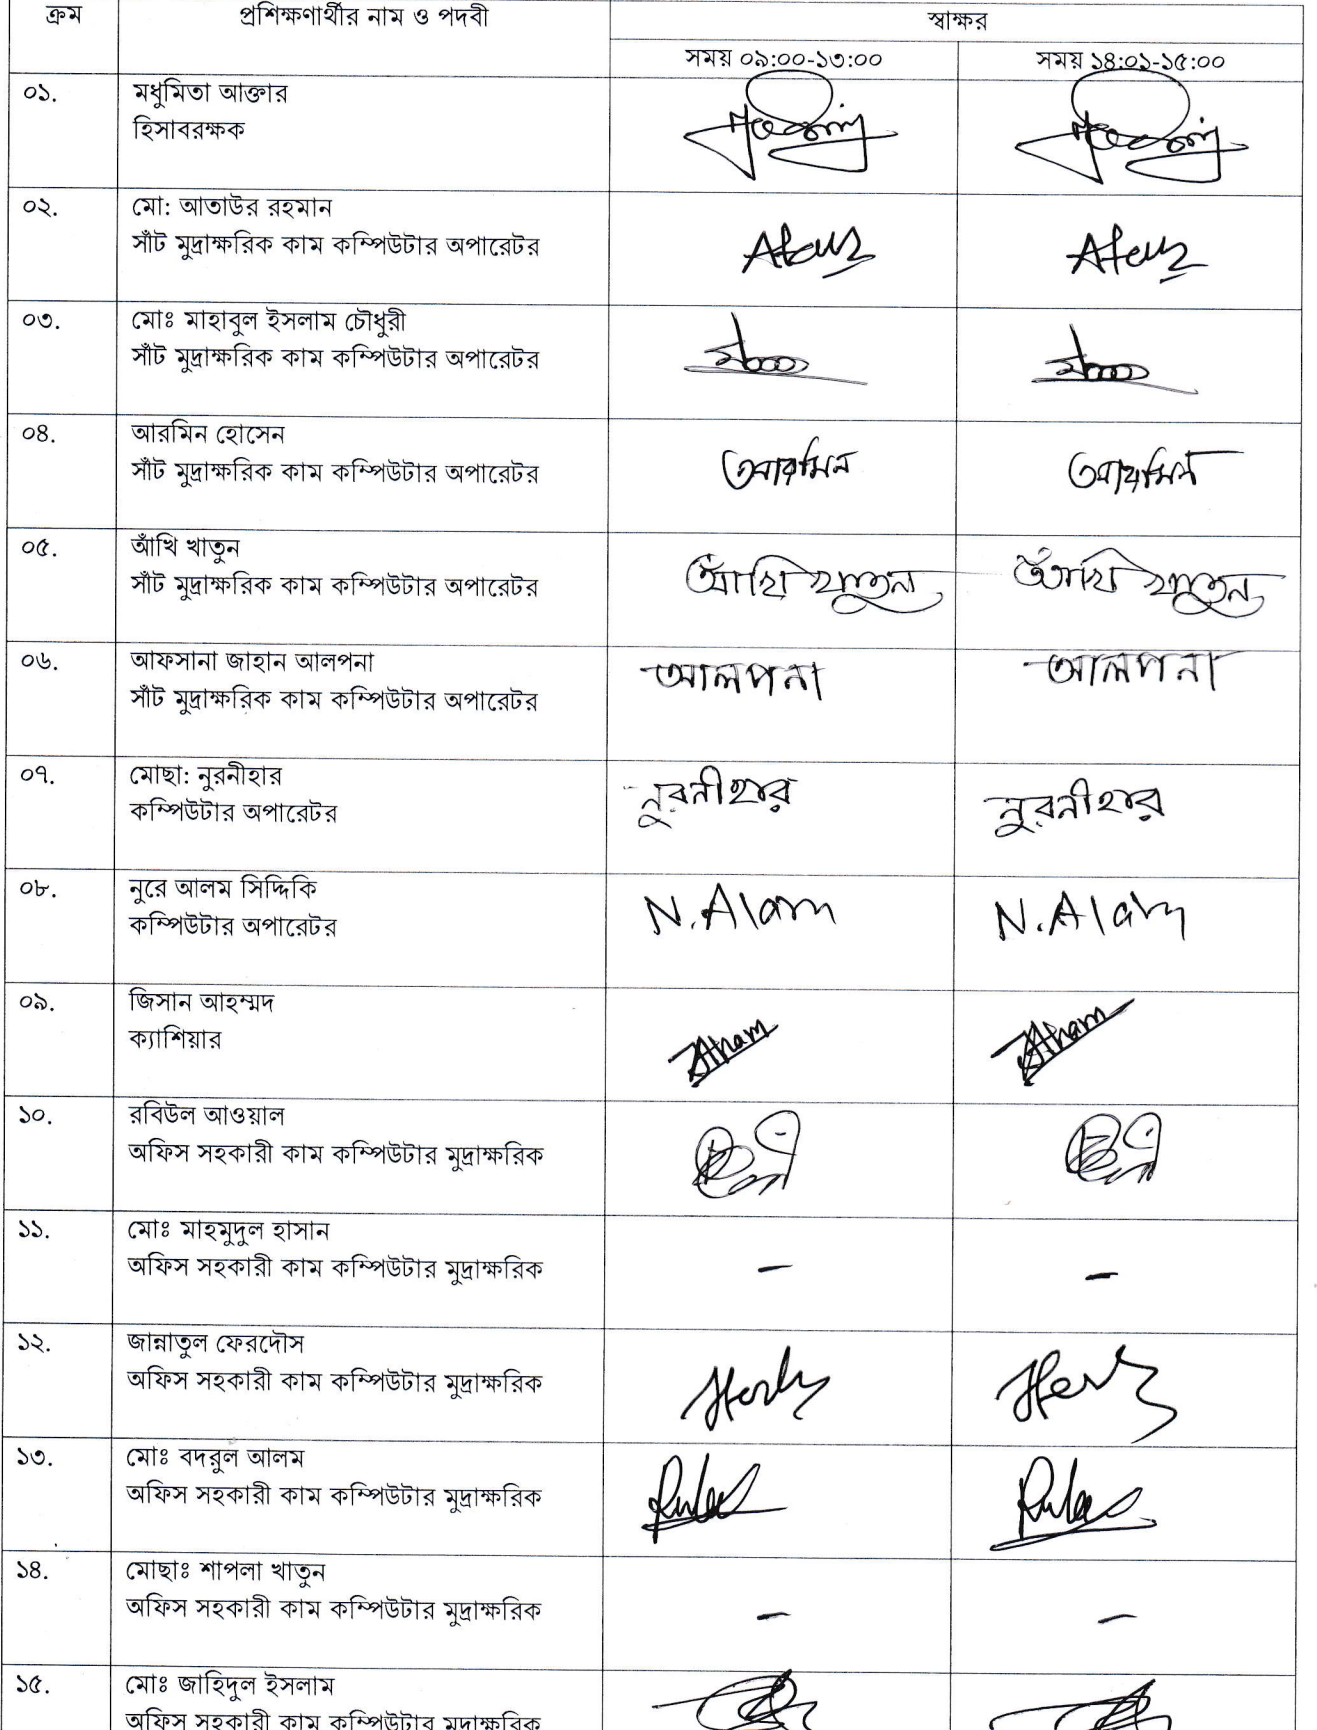 ক্রম প্রশিক্ষণার্থীর নাম ও পদবী স্বাক্ষর
সময় ০৯:০০-১৩:০০ সময় ১৪:০১-১৫:০০
০১. মধুমিতা আক্তার
হিসাবরক্ষক
০২. মো: আতাউর রহমান
সাঁট মুদ্রাক্ষরিক কাম কম্পিউটার অপারেটর
০৩. মোঃ মাহাবুল ইসলাম চৌধুরী
সাঁট মুদ্রাক্ষরিক কাম কম্পিউটার অপারেটর
০৪. আরমিন হোসেন
সাঁট মুদ্রাক্ষরিক কাম কম্পিউটার অপারেটর আরমিন আরমিন
০৫. আঁখি খাতুন
সাঁট মুদ্রাক্ষরিক কাম কম্পিউটার অপারেটর আঁখি খাতুন আঁখি খাতুন
০৬. আফসানা জাহান আলপনা আলপনা আলপনা
সাঁট মুদ্রাক্ষরিক কাম কম্পিউটার অপারেটর
০৭. মোছা: নুরনীহার নুরনীহার নুরনীহার
কম্পিউটার অপারেটর
০৮. নুরে আলম সিদ্দিকি N.Alam N.Alam
কম্পিউটার অপারেটর
০৯. জিসান আহম্মদ
ক্যাশিয়ার
১০. রবিউল আওয়াল
অফিস সহকারী কাম কম্পিউটার মুদ্রাক্ষরিক
১১. মোঃ মাহমুদুল হাসান
অফিস সহকারী কাম কম্পিউটার মুদ্রাক্ষরিক - -
১২. জান্নাতুল ফেরদৌস
অফিস সহকারী কাম কম্পিউটার মুদ্রাক্ষরিক
১৩. মোঃ বদরুল আলম
অফিস সহকারী কাম কম্পিউটার মুদ্রাক্ষরিক
১৪. মোছাঃ শাপলা খাতুন
অফিস সহকারী কাম কম্পিউটার মুদ্রাক্ষরিক - -
১৫. মোঃ জাহিদুল ইসলাম
অফিস সহকারী কাম কম্পিউটার মুদ্রাক্ষরিক